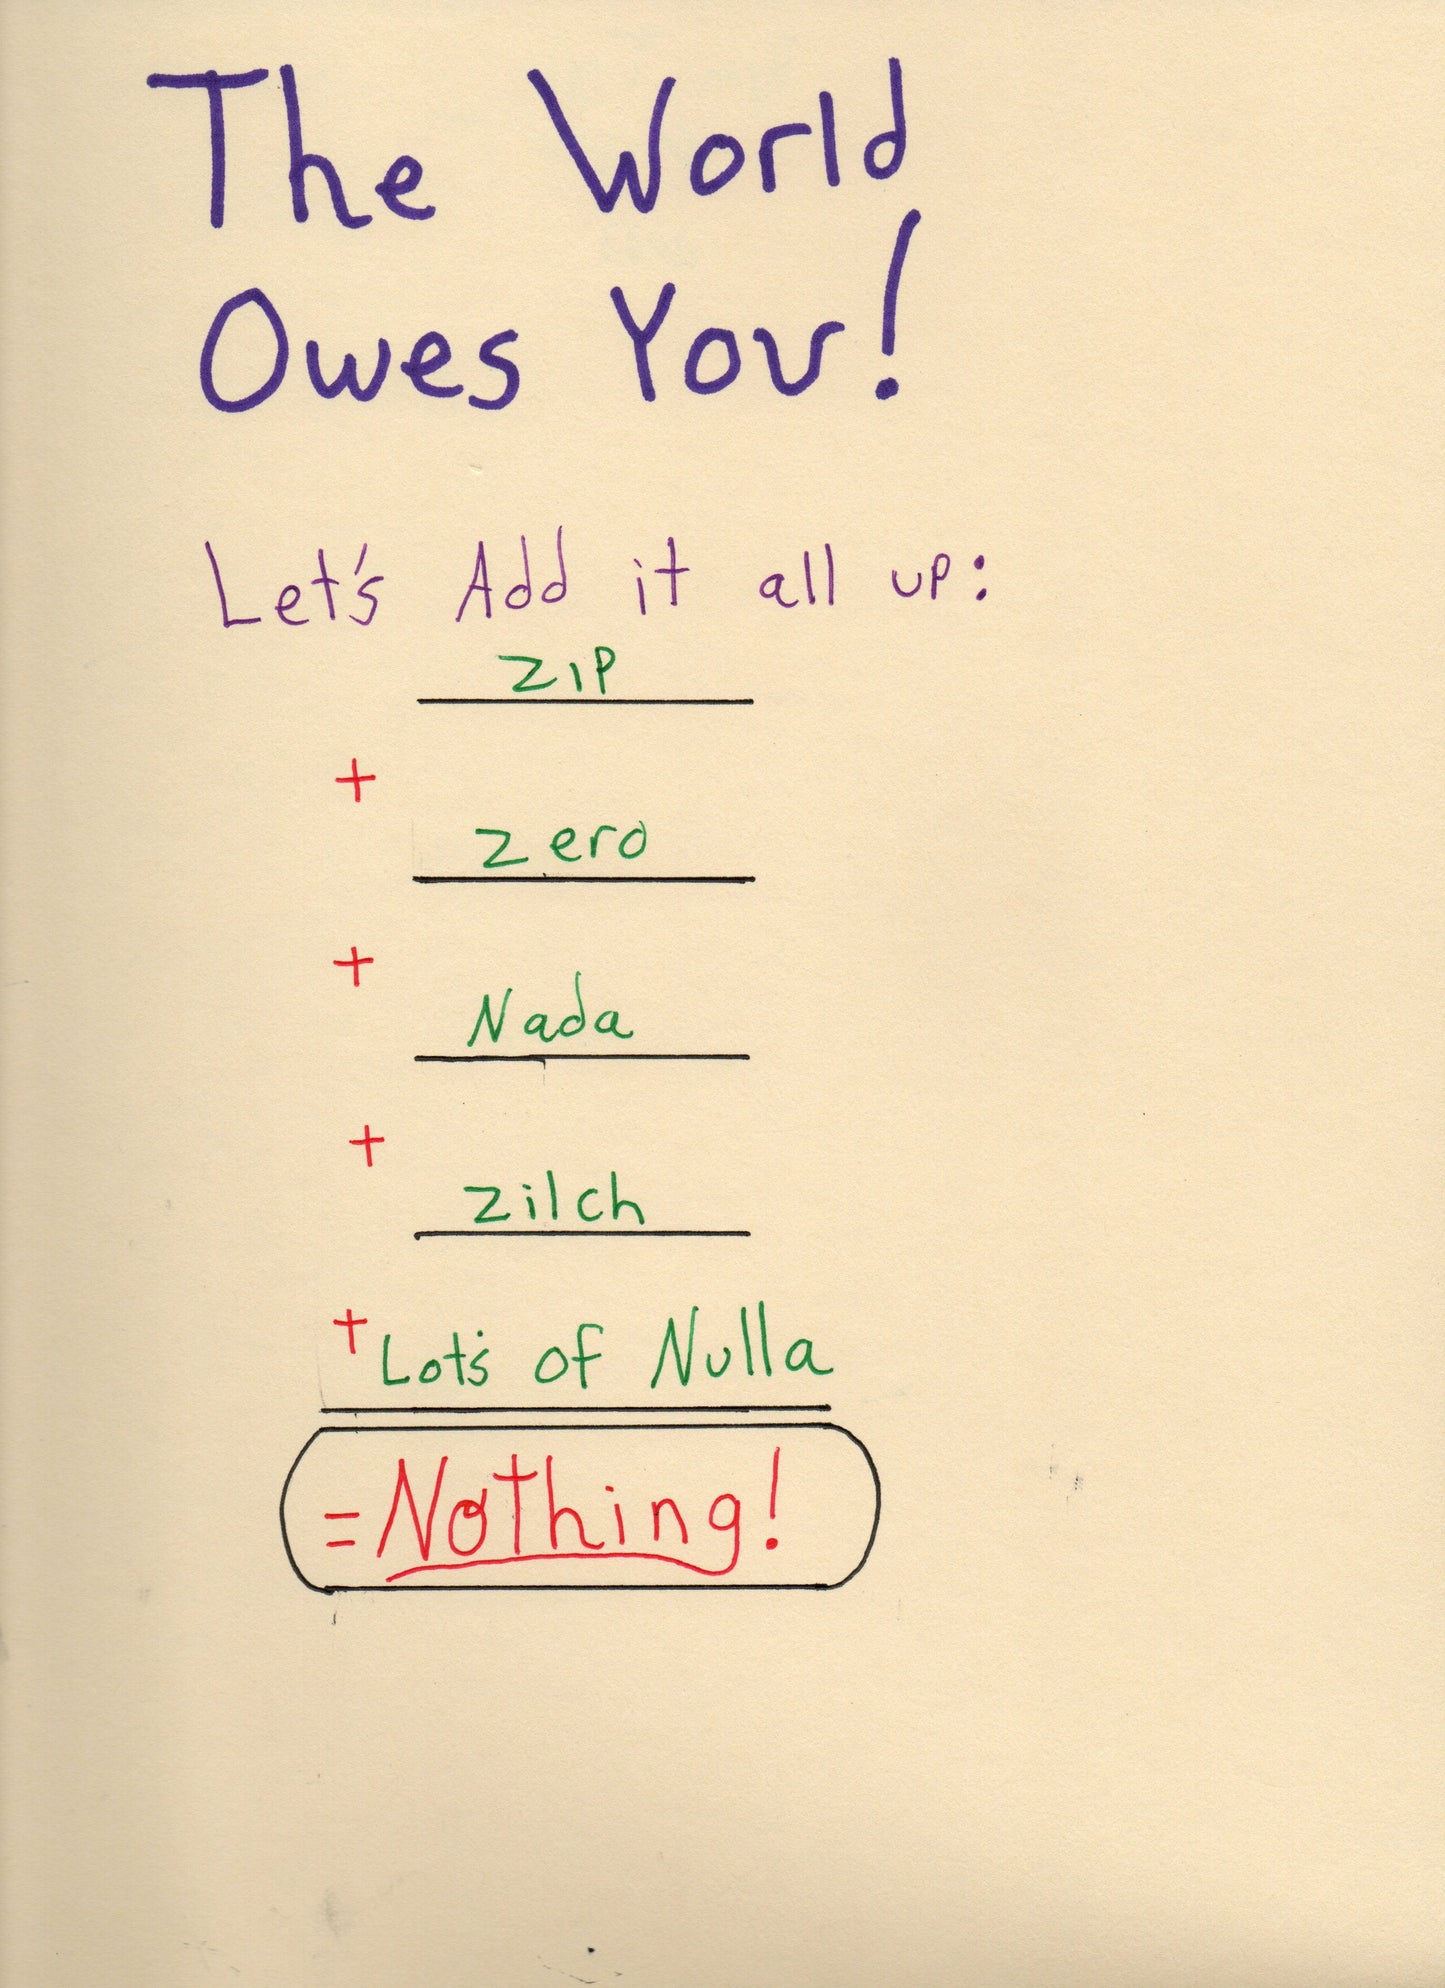 The World
Owes You!
Let's Add it all up:
ZIP
+
Zero
+
Nada
+
Zilch
+ Lot's of Nulla
= Nothing!